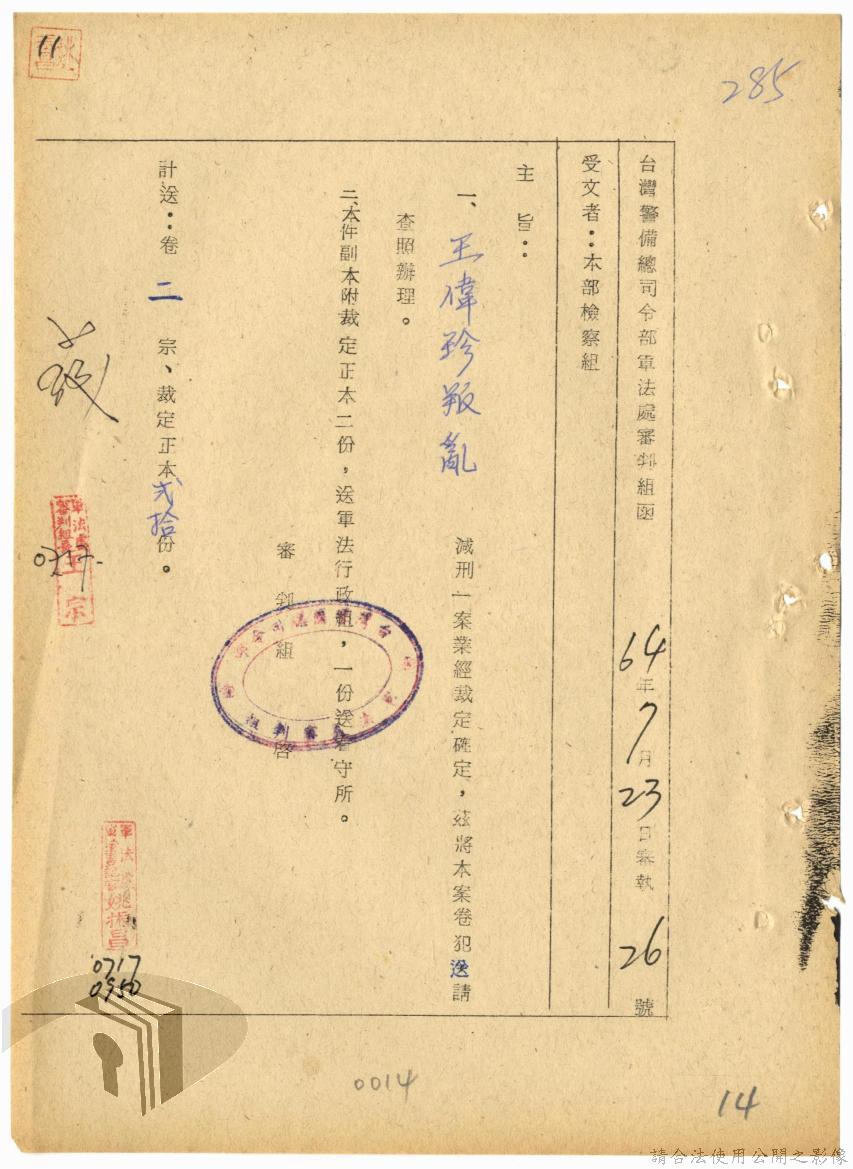 11
285
台灣警備總司令部軍法處審判組函
64年7月23日審執26號
受文者：本部檢察組
主旨：
一、王偉珍叛亂減刑一案業經裁定確定，茲將本案卷犯送請
查照辦理。
二、本件副本附裁定正本二份，送軍法行政組，一份送看守所。
審判組 啓
計送：卷二宗、裁定正本弍拾份。
軍法處
審判組長
0717
軍法處
書記官姚
0717
0950
0014
14
請合法使用公開之影像